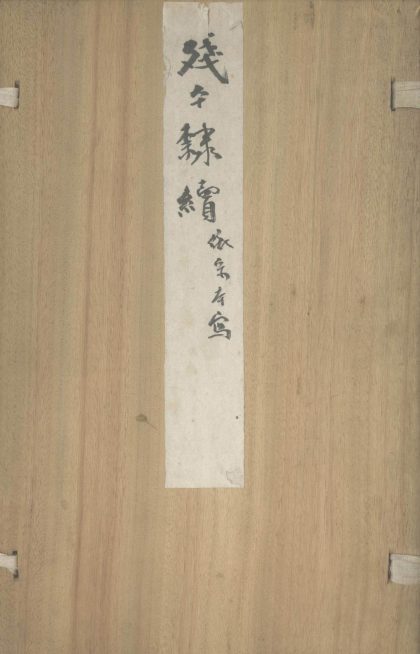 殘本隸續依宋本寫